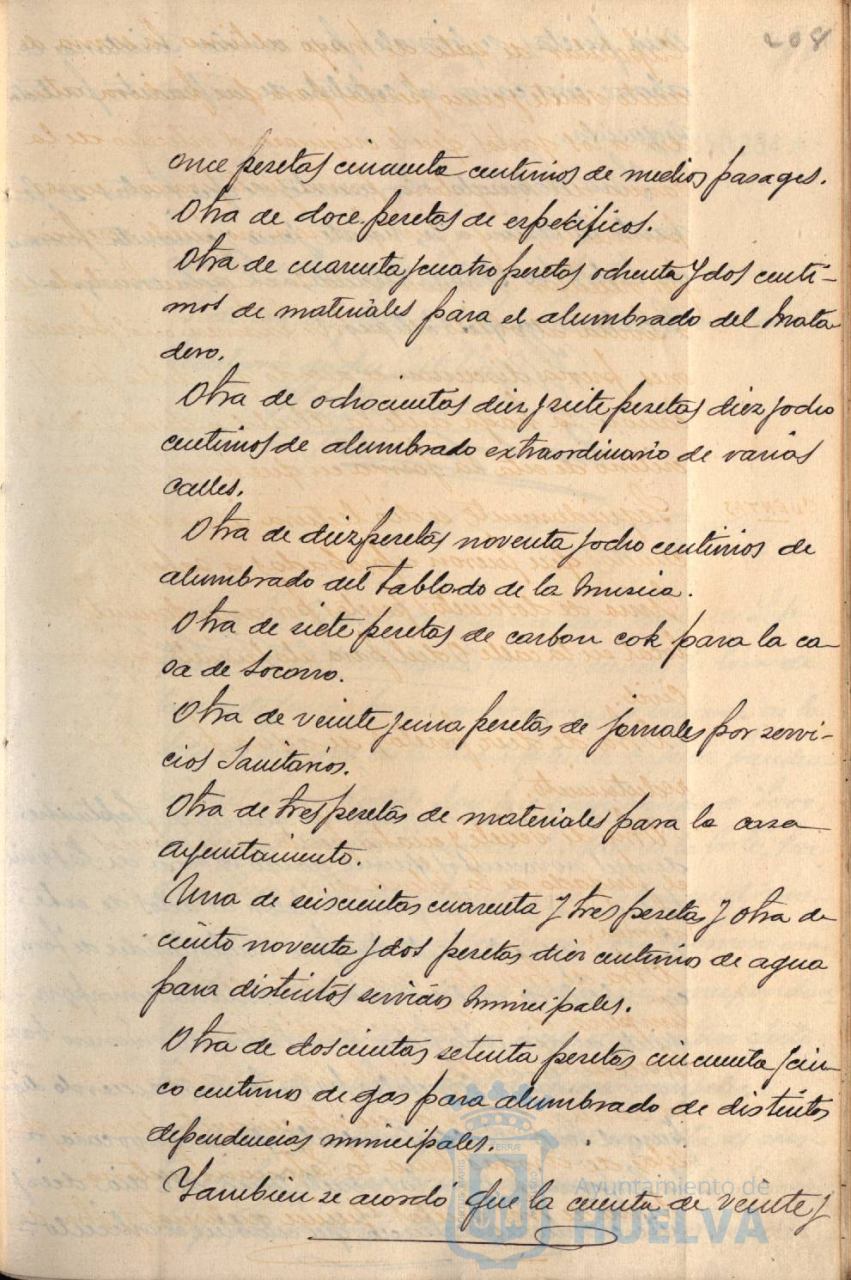 208
once pesetas cincuenta centimos de medios pasages.
Otra de doce pesetas de espekificos.
Otra de cuarenta y cuatro pesetas ochenta y dos centi-
mos de materiales para el alumbrado del Mata
dero.
Otra de ochocientas diez y siete pesetas diez y ocho
centimos de alumbrado extraordinario de varias
calles.
Otra de diez pesetas noventa y ocho centimos de
alumbrado del tablado de la Musica.
Otra de siete pesetas de carbon cok para la ca-
sa de Socorro.
Otra de veinte y una pesetas de jornales por servi-
cios Sanitarios.
Otra de tres pesetas de materiales para la casa
Ayuntamiento.
Una de seiscientas cuarenta y tres pesetas y otra de
ciento noventa y dos pesetas diez centimos de agua
para distintos servicios Municipales.
Otra de doscientas setenta pesetas cincuenta y cin-
co centimos de gas para alumbrado de distintos
dependencias municipales.
Tambien se acordó que la cuenta de veinte y
Ayuntamiento de
HUELVA